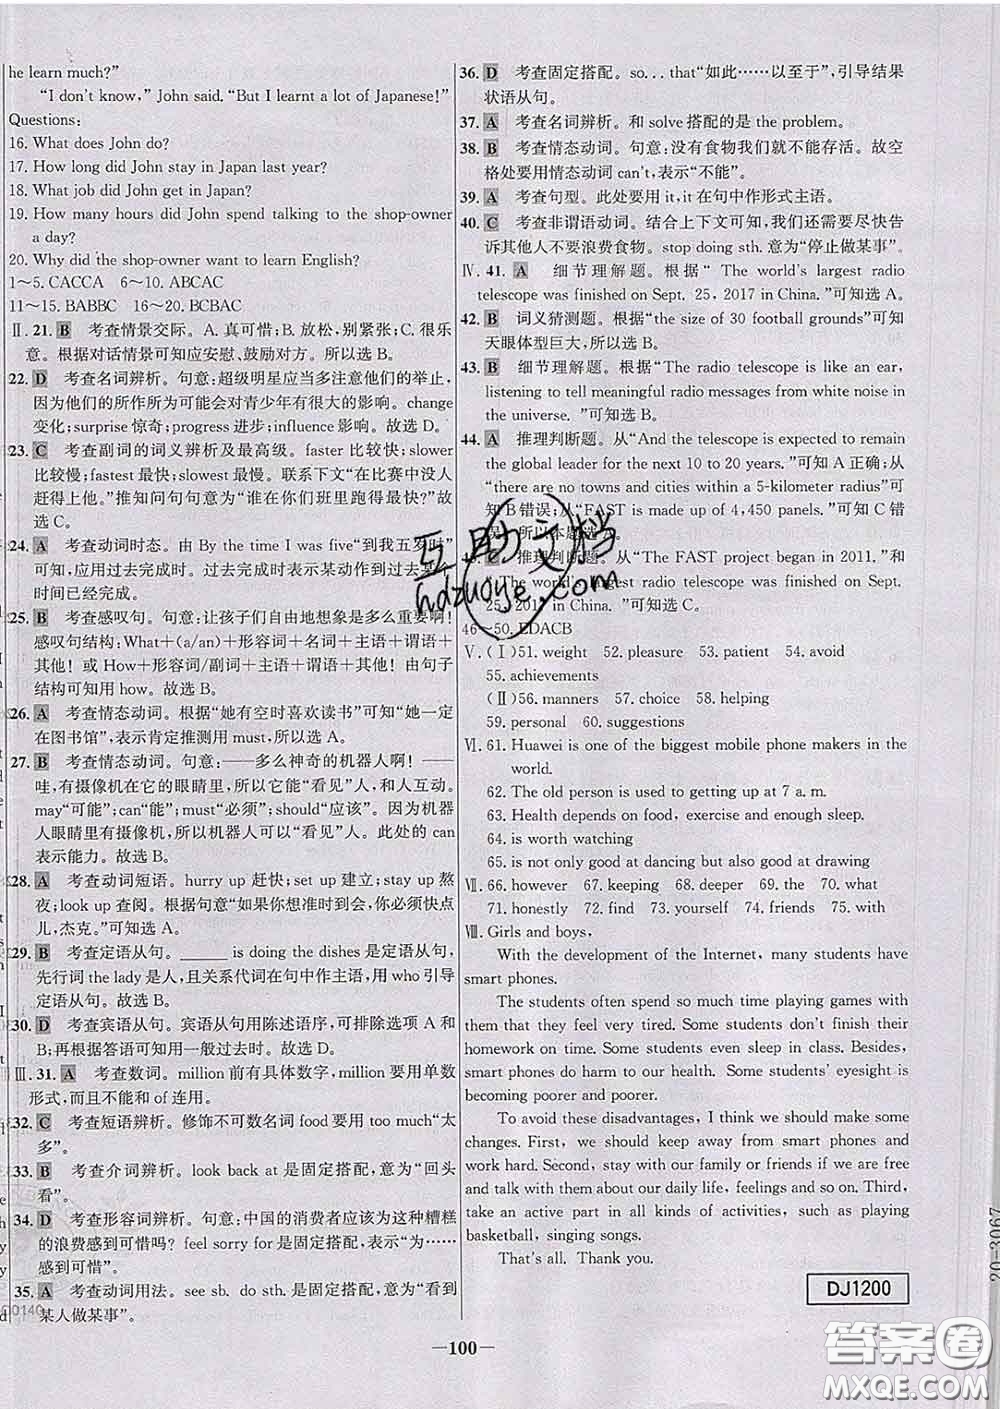 he learn much?"
"I don't know," John said. "But I learnt a lot of Japanese!"
Questions:
16. What does John do?
17. How long did John stay in Japan last year?
18. What job did John get in Japan?
19. How many hours did John spend talking to the shop-owner
a day?
20. Why did the shop-owner want to learn English?
1～5. CACCA 6～10. ABCAC
11～15. BABBC 16～20. BCBAC
Ⅱ. 21. B 考查情景交际。A. 真可惜;B. 放松,别紧张;C. 很乐
意。根据对话情景可知应安慰、鼓励对方。所以选 B。
22. D 考查名词辨析。句意:超级明星应当多注意他们的举止,
因为他们的所作所为可能会对青少年有很大的影响。change
变化;surprise 惊奇;progress 进步;influence 影响。故选 D。
23. C 考查副词的词义辨析及最高级。faster 比较快;slower
比较慢;fastest 最快;slowest 最慢。联系下文"在比赛中没人
赶得上他。"推知问句句意为"谁在你们班里跑得最快?"故
选 C。
24. A 考查动词时态。由 By the time I was five"到我五岁时"
可知,应用过去完成时。过去完成时表示某动作在过去某一
时间已经完成。
25. B 考查感叹句。句意:让孩子们自由地想象是多么重要啊!
感叹句结构:What＋(a/an)＋形容词＋名词＋主语＋谓语＋
其他! 或 How＋形容词/副词＋主语＋谓语＋其他! 由句子
结构可知用 how。故选 B。
26. A 考查情态动词。根据"她有空时喜欢读书"可知"她一定
在图书馆",表示肯定推测用 must,所以选 A。
27. B 考查情态动词。句意:——多么神奇的机器人啊! ——
哇,有摄像机在它的眼睛里,所以它能"看见"人,和人互动。
may"可能";can"能";must"必须";should"应该"。因为机器
人眼睛里有摄像机,所以机器人可以"看见"人。此处的 can
表示能力。故选 B。
28. A 考查动词短语。hurry up 赶快;set up 建立;stay up 熬
夜;look up 查阅。根据句意"如果你想准时到会,你必须快点
儿,杰克。"可知选 A。
29. B 考查定语从句。______ is doing the dishes 是定语从句,
先行词 the lady 是人,且关系代词在句中作主语,用 who 引导
定语从句。故选 B。
30. D 考查宾语从句。宾语从句用陈述语序,可排除选项 A 和
B;再根据答语可知用一般过去时。故选 D。
Ⅲ. 31. A 考查数词。million 前有具体数字,million 要用单数
形式,而且不能和 of 连用。
32. C 考查短语辨析。修饰不可数名词 food 要用 too much"太
多"。
33. B 考查介词辨析。look back at 是固定搭配,意为"回头
看"。
34. D 考查形容词辨析。句意:中国的消费者应该为这种糟糕
的浪费感到可惜吗? feel sorry for 是固定搭配,表示"为……
感到可惜"。
35. A 考查动词用法。see sb. do sth. 是固定搭配,意为"看到
某人做某事"。
36. D 考查固定搭配。so… that"如此……以至于",引导结果
状语从句。
37. A 考查名词辨析。和 solve 搭配的是 the problem。
38. B 考查情态动词。句意:没有食物我们就不能存活。故空
格处要用情态动词 can't,表示"不能"。
39. A 考查句型。此处要用 it,it 在句中作形式主语。
40. C 考查非谓语动词。结合上下文可知,我们还需要尽快告
诉其他人不要浪费食物。stop doing sth. 意为"停止做某事"。
Ⅳ. 41. A 细节理解题。根据" The world's largest radio
telescope was finished on Sept. 25, 2017 in China. "可知选 A。
42. B 词义猜测题。根据"the size of 30 football grounds"可知
天眼体型巨大,所以选 B。
43. B 细节理解题。根据"The radio telescope is like an ear,
listening to tell meaningful radio messages from white noise in
the universe. "可知选 B。
44. A 推理判断题。从"And the telescope is expected to remain
the global leader for the next 10 to 20 years. "可知 A 正确;从
"there are no towns and cities within a 5-kilometer radius"可
知 B 错误;从"FAST is made up of 4,450 panels."可知 C 错
误。所以本题选 A。
45. C 推理判断题。从"The FAST project began in 2011. "和
"The world's largest radio telescope was finished on Sept.
25, 2017 in China. "可知选 C。
46～50. EDACB
Ⅴ. (Ⅰ)51. weight 52. pleasure 53. patient 54. avoid
55. achievements
(Ⅱ)56. manners 57. choice 58. helping
59. personal 60. suggestions
Ⅵ. 61. Huawei is one of the biggest mobile phone makers in the
world.
62. The old person is used to getting up at 7 a. m.
63. Health depends on food, exercise and enough sleep.
64. is worth watching
65. is not only good at dancing but also good at drawing
Ⅶ. 66. however 67. keeping 68. deeper 69. the 70. what
71. honestly 72. find 73. yourself 74. friends 75. with
Ⅷ. Girls and boys,
With the development of the Internet, many students have
smart phones.
The students often spend so much time playing games with
them that they feel very tired. Some students don't finish their
homework on time. Some students even sleep in class. Besides,
smart phones do harm to our health. Some students' eyesight is
becoming poorer and poorer.
To avoid these disadvantages, I think we should make some
changes. First, we should keep away from smart phones and
work hard. Second, stay with our family or friends if we are free
and talk with them about our daily life, feelings and so on. Third,
take an active part in all kinds of activities, such as playing
basketball, singing songs.
That's all. Thank you.
DJ1200
—100—
20-3067
00140
互助文档
hdzuoye.com
答案圈
MXQE.COM